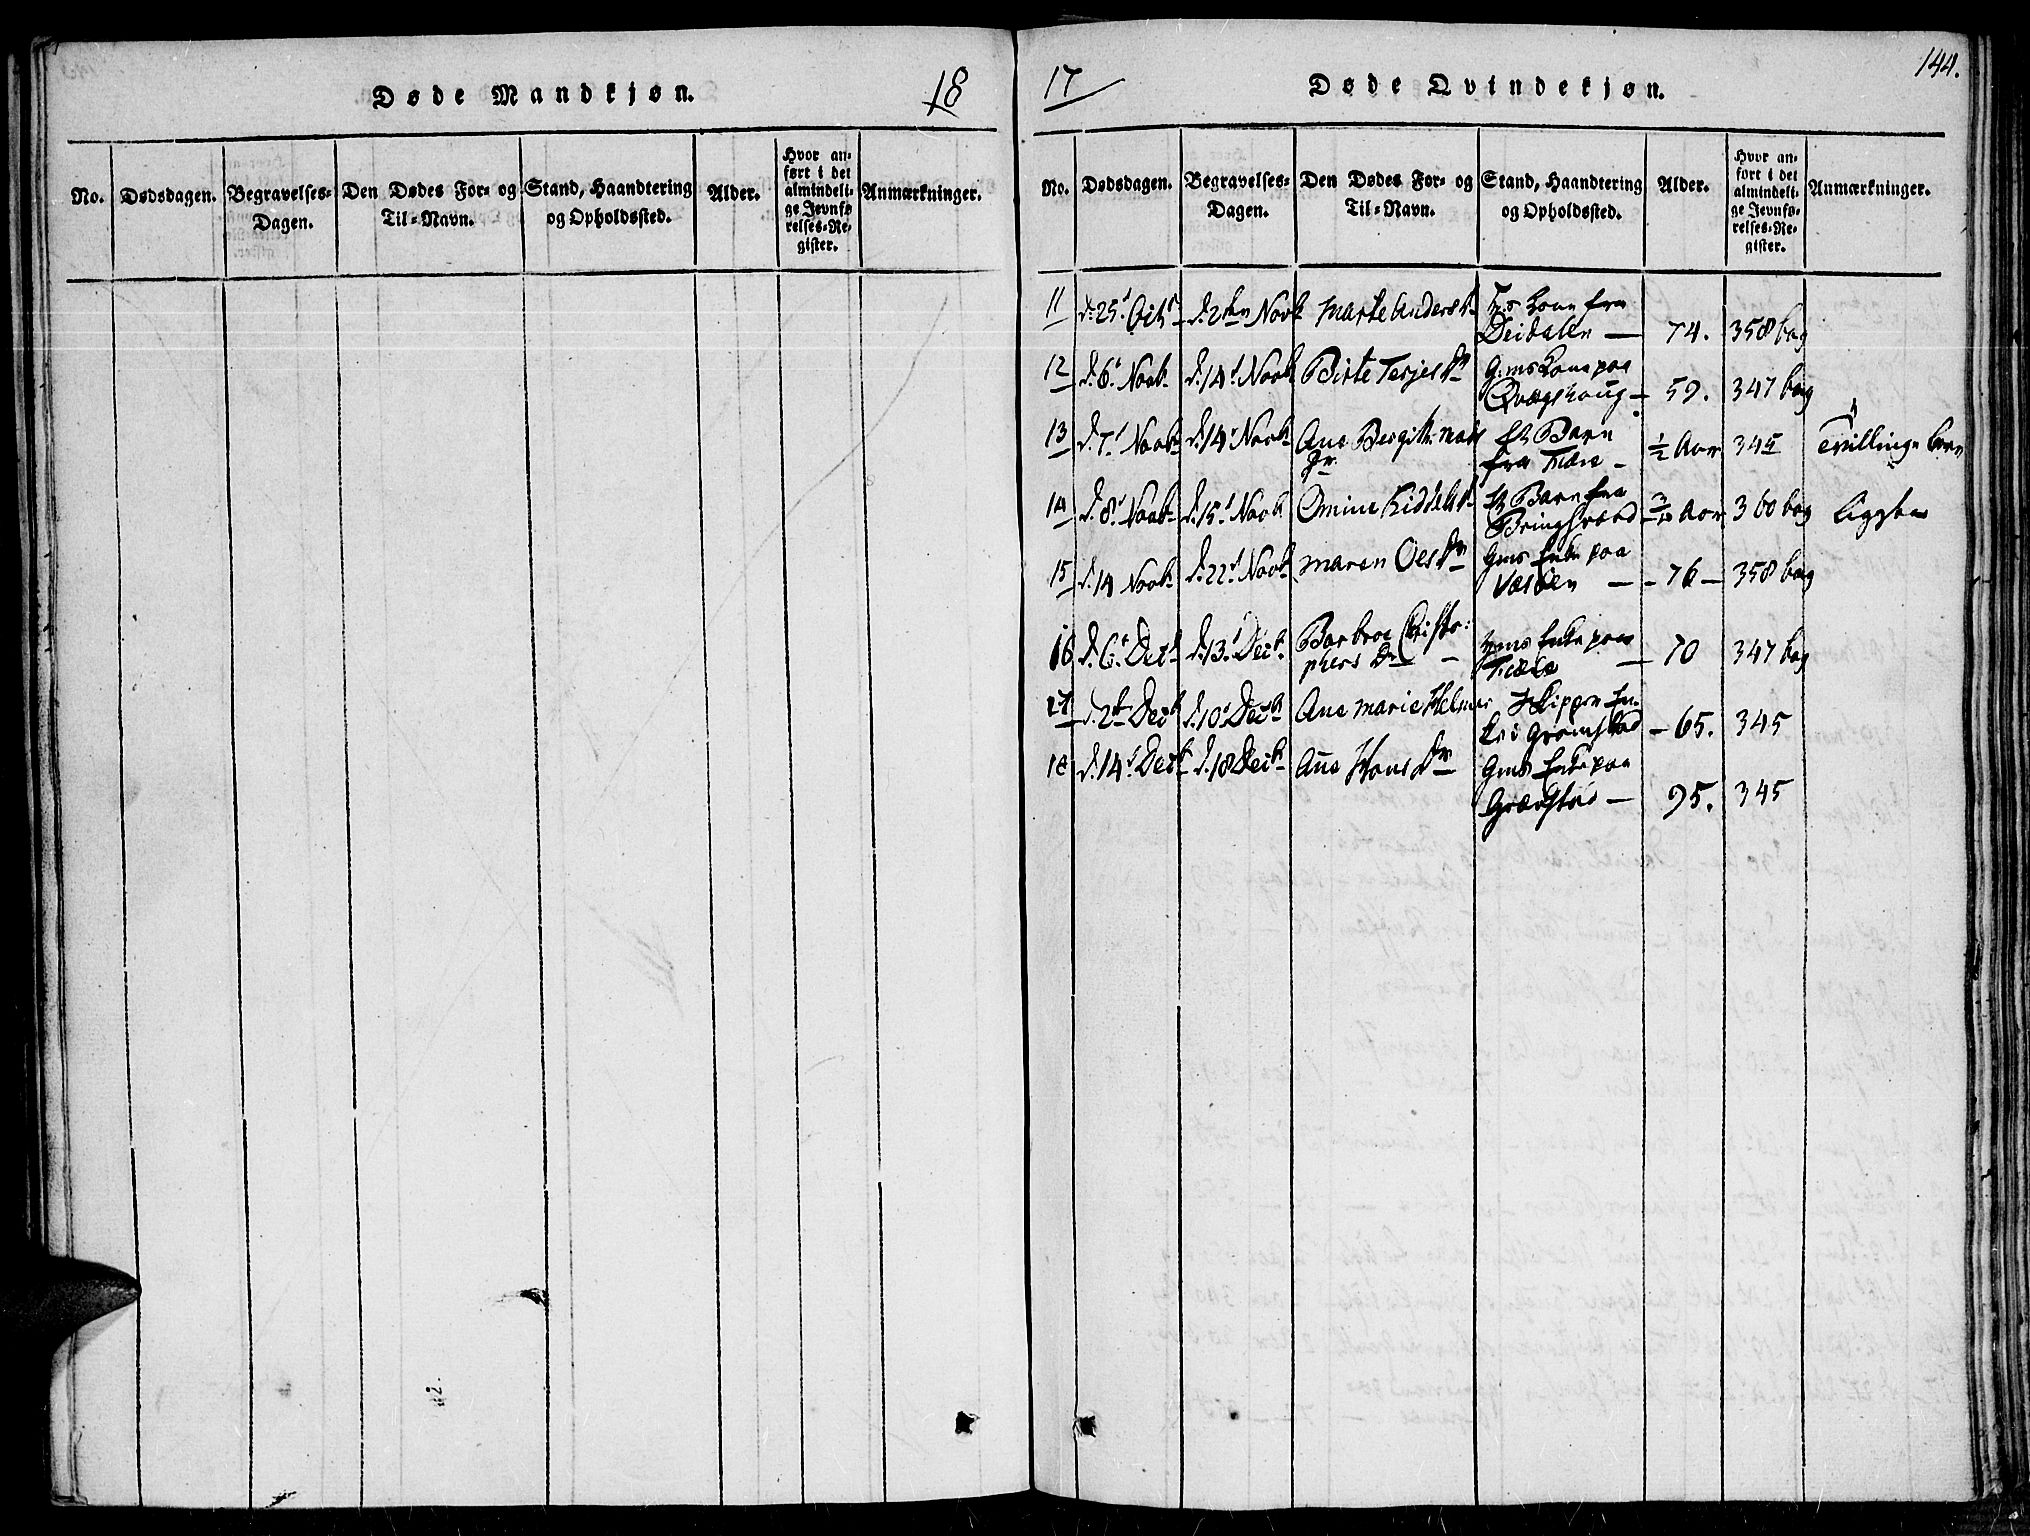 Døde Mandkjøn.
18
No.
Dødsdagen.
Begravelses-
Dagen.
Den Dødes For- og
Til-Navn.
Stand, Haandtering
og Opholdssted.
Alder.
Hvor an-
ført i det
almindeli-
ge Jevnfø
relses-Re-
gister.
Anmærkninger.
17
Døde Qvindekjøn.
144.
No.
Dødsdagen.
Begravelses-
Dagen.
Den Dødes For- og
Til-Navn.
Stand, Haandtering
og Opholdssted.
Alder.
Hvor an-
ført i det
almindeli-
ge Jevnfø-
relses-Re-
gister.
Anmærkninger.
11 d. 25 d. 2den Novb Marte Anders Kone fra
Deidalen — 74. 358 bag
12 d. 6t Novb d. 14t Novb Birte Terjes Dr Gms Kone paa
59. 347 bag
13 d. 7t Novb d. 14t Novb Ane Bergithe Barn
fra ½ Aar 345 Tvillinge
14 d. 8t Novb d. 15t Novb Omine Kiddels Barn fra
Bringsværd Aar 360 bag
15 d. 14 Novb d. 22t Novb Maren Oles Dr Gms Enke paa
— 76 — 358 bag
16 d. 6t Decb d. 13t Decb Barbroe Christo-
phers Dr — Enke paa
— 70 347 bag
17 d. 2t Decb d. 10t Decb Ane Marie Helmer Skipper En-
ke i Gromstad — 65. 345
18 d. 14t Decb d. 18 Decb Ane Hans Dr Gms Enke paa
— 95. 345